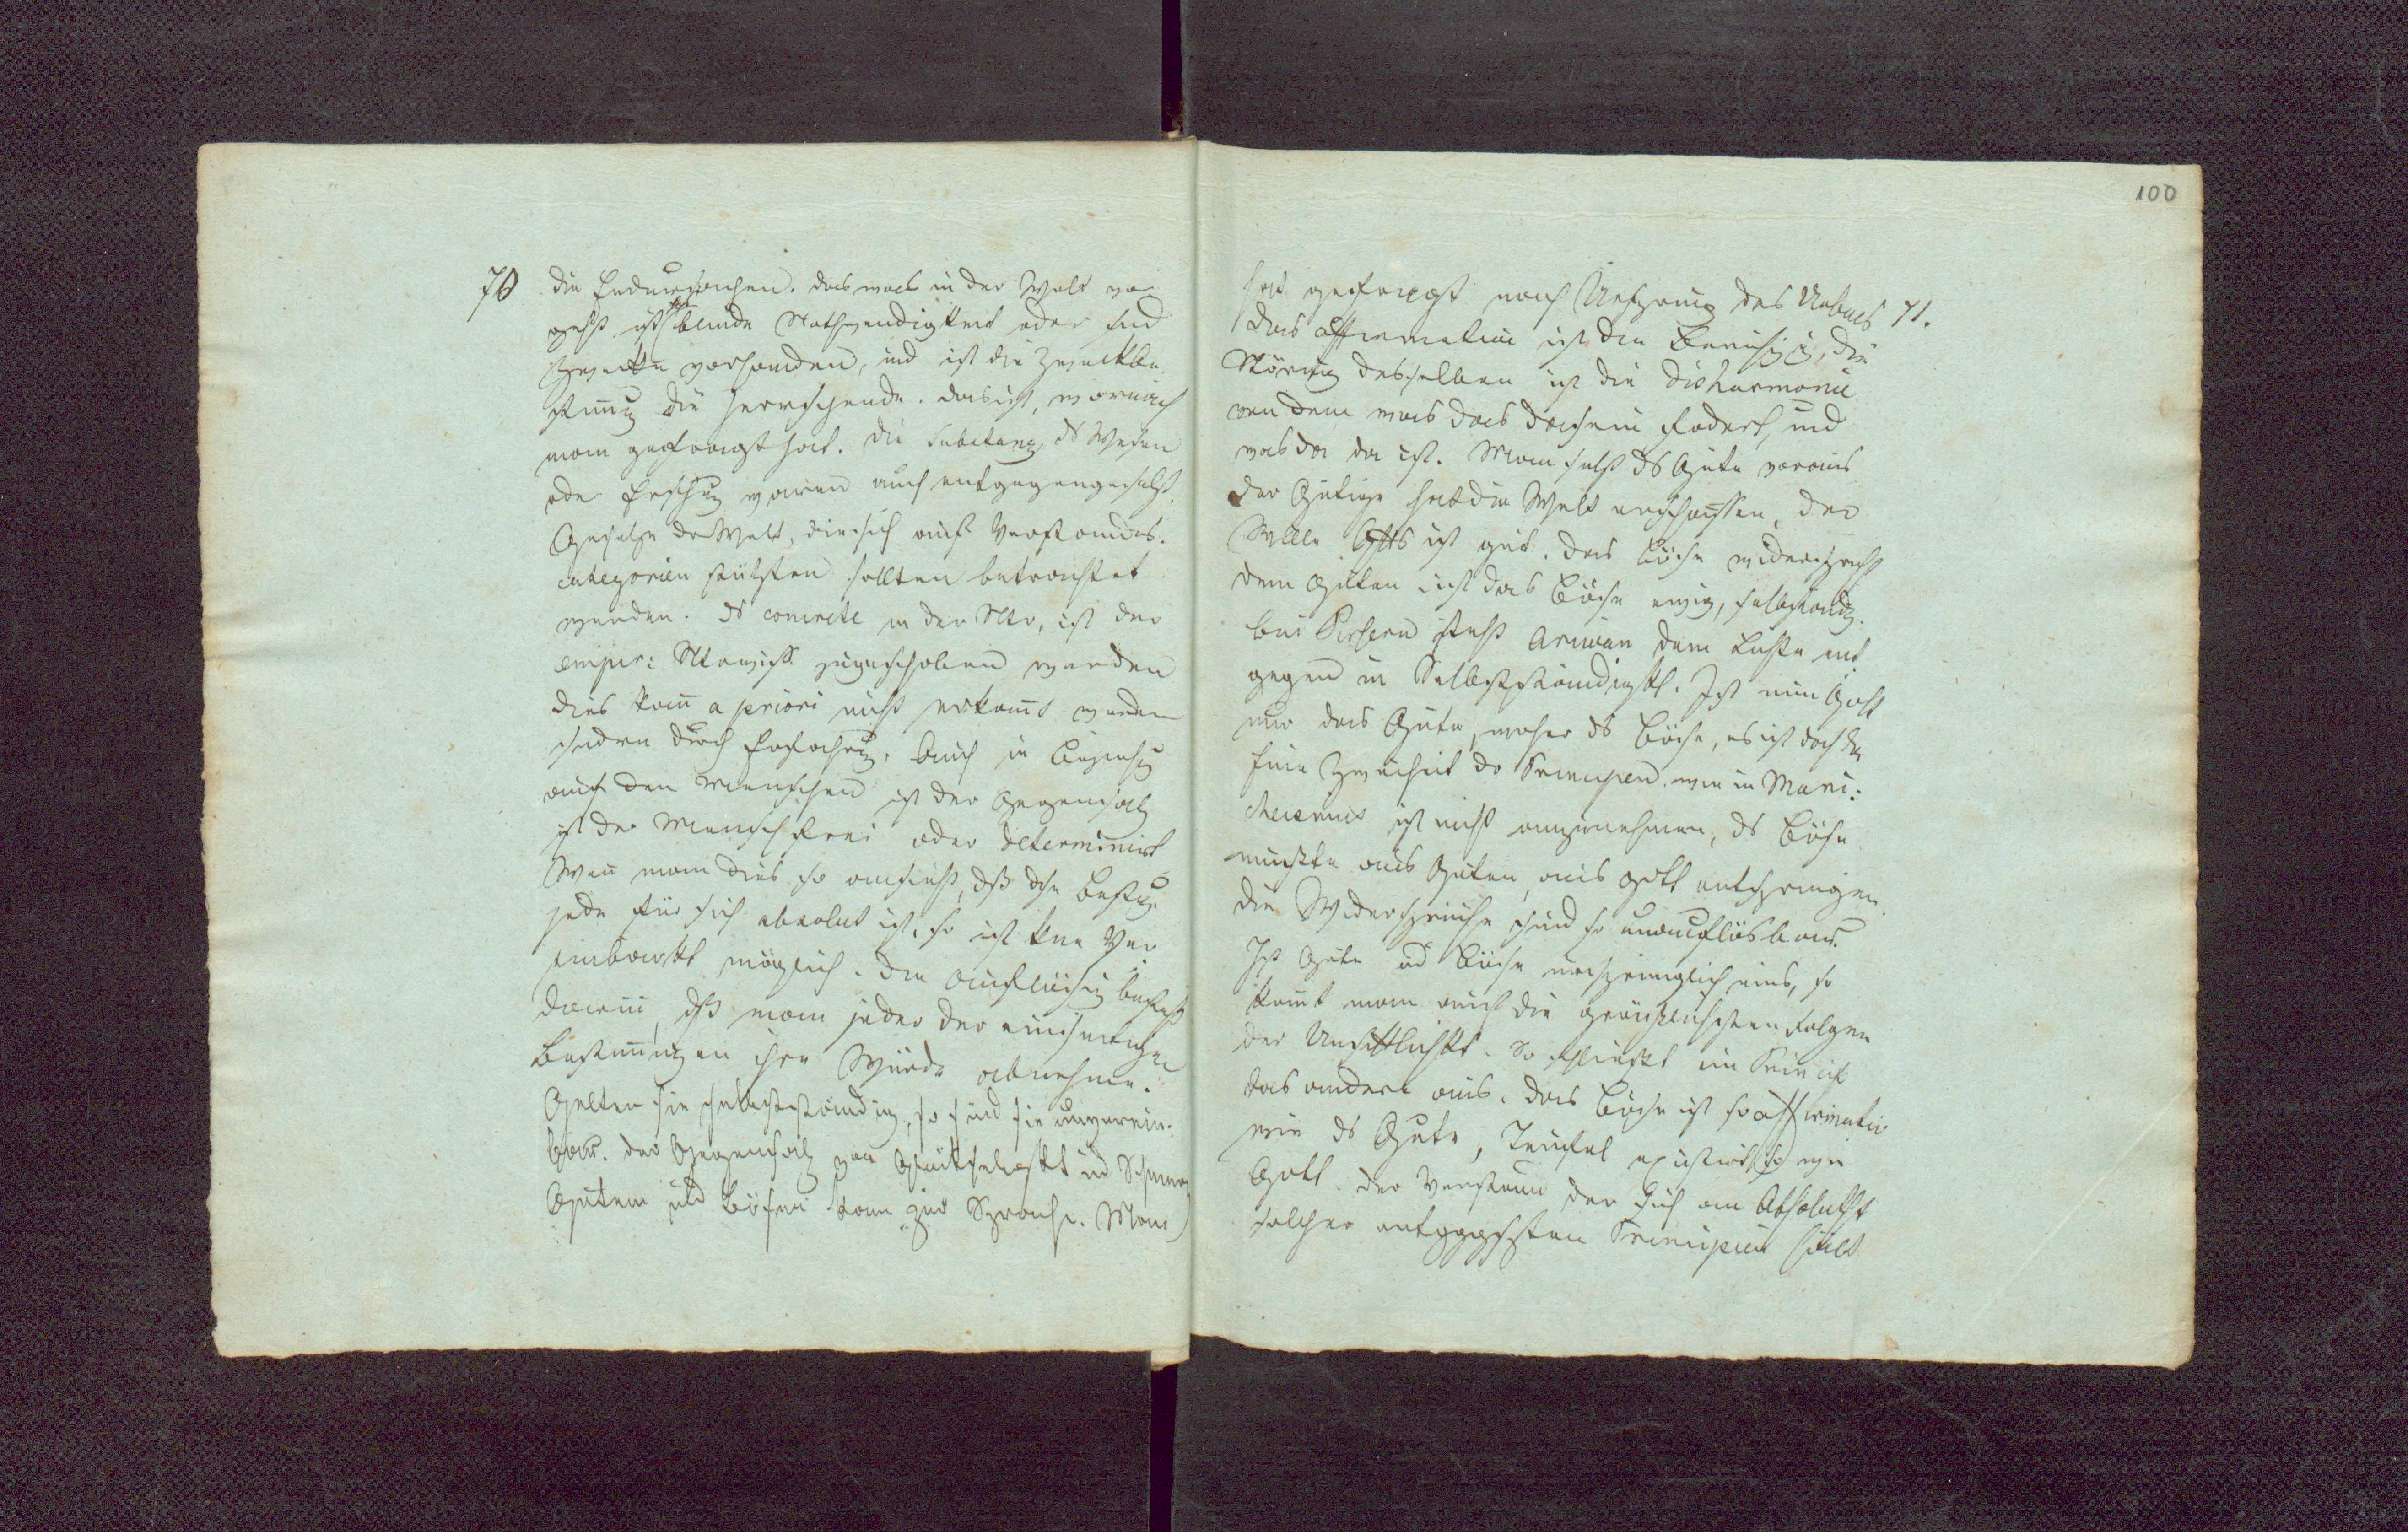 70
die Endursachen. das was in der Welt vor
geht ist blinde Nothwendigkeit oder sind
Zwecke vorhanden, und ist die Zweckbe
stimung die herrschende. das ist, wornach
man gefragt hat. die Substanz, ds Wesen
oder waren auch entgegengesetzt.
Gesetze der Welt, die sich auf Verstandes-
categorien stützten sollten betrachtet
werden. ds concrete in der Ntr, ist der
empir: zugeschoben werden
dies kan a priori nicht erkant werden
sondern durch Erfahrug. Auch in Beziehg
auf den Menschen ist der Gegensatz
ist der Mensch frei oder determinirt
Wen man dies so ansieht, dß diese Bestimg
jede für sich absolut ist, so ist kne Ver
einbarkt möglich. die Auflösug besteht
darin, dß man jeder der einseitigen
Bestimungen ihre Würde abnehme.
Gelten sie selbstständig, so sind sie unverein-
bar. der Gegensatz von Glükseligkt ud Schmerz
Gutem und Bösen kam zur Sprache. Man
100
71.
hat gefragt nach Ursprung des Uebels
das affirmative ist die die
Störung desselben ist die disharmonie
von dem was das Dasein fodert, und
was da da ist. Man setzt ds Gute voraus
der Gütige hat die Welt erschaffen, der
Wille Gtts ist gut. das Böse widerspricht
dem Guten ist das Böse ewig, selbständg.
bei Persern steht Ariman dem Lichte ent
gegen in Selbstständigkt. Ist nun Gott
nur das Gute, woher ds Böse, es ist doch da
Eine Zweiheit dr Principien wie in Mani:
cheismus ist nicht anzunehmen, ds Böse
müßte aus Guten, aus Gott entspringen
die Widersprüche sind so unauflösbar.
Ist Gute ud Böse ursprünglich eins, so
komt man auf die gräuslichsten Folgen
der Unsittlichkt. So schließt ein Princip
das andere aus. das Böse ist so affirmativ
wie ds Gute, Teufel existirt so wie
Gott. der Verstand der sich an Absolutht
solcher entggsten Principien hält